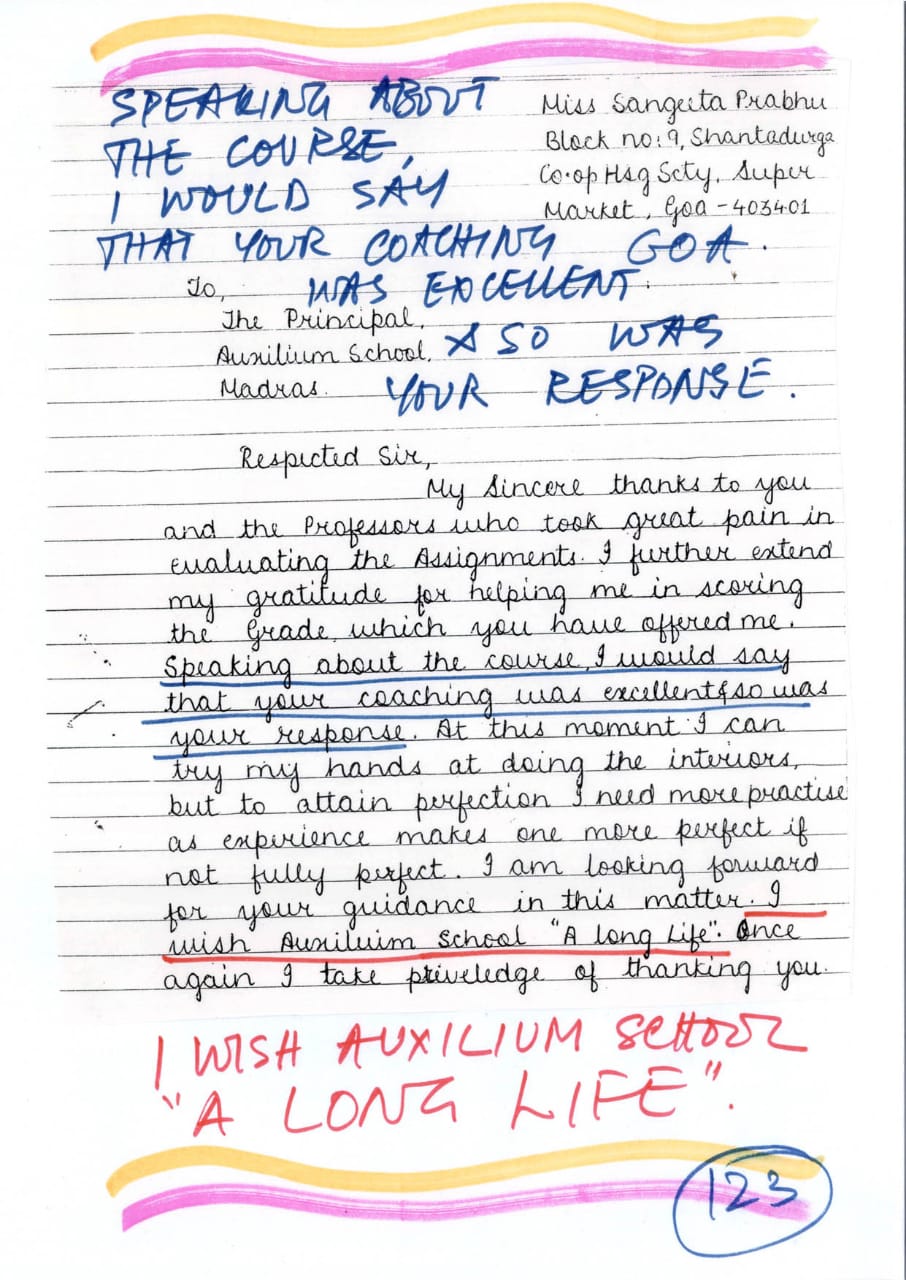 SPEAKING ABOUT
THE COURSE,
I WOULD SAY
THAT YOUR COACHING
WAS EXCELLENT.
& SO WAS
YOUR RESPONSE.
Miss Sangeeta Prabhu
Block no: 9, Shantadurga
Co.op Hsg Scty, Super
Market, Goa - 403401
GOA.
To,
The Principal,
Auxilium School,
Madras.
Respected Sir,
My Sincere thanks to you
and the Professors who took great pain in
evaluating the Assignments. I further extend
my gratitude for helping me in scoring
the Grade, which you have offered me.
Speaking about the course, I would say
that your coaching was excellent & so was
your response. At this moment I can
try my hands at doing the interiors,
but to attain perfection I need more practise
as experience makes one more perfect if
not fully perfect. I am looking forward
for your guidance in this matter. I
wish Auxiluim School "A long Life". Once
again I take priveledge of thanking you.
I WISH AUXILIUM SCHOOL
"A LONG LIFE".
123